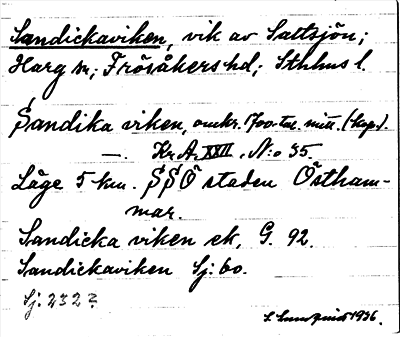 Sandickaviken, vik av Saltsjön;
Harg sn; Frösåkers hd; Sthlms l.
Sandika viken, omkr. 1700-tal. mitt. (kop.).
—. Kr. A. XXII, N:o 35.
Läge 5 km. SSÖ staden Östham-
mar.
Sandicka viken ek. G. 92.
Sandickaviken Sj: 60.
Sj: 232?
1936.